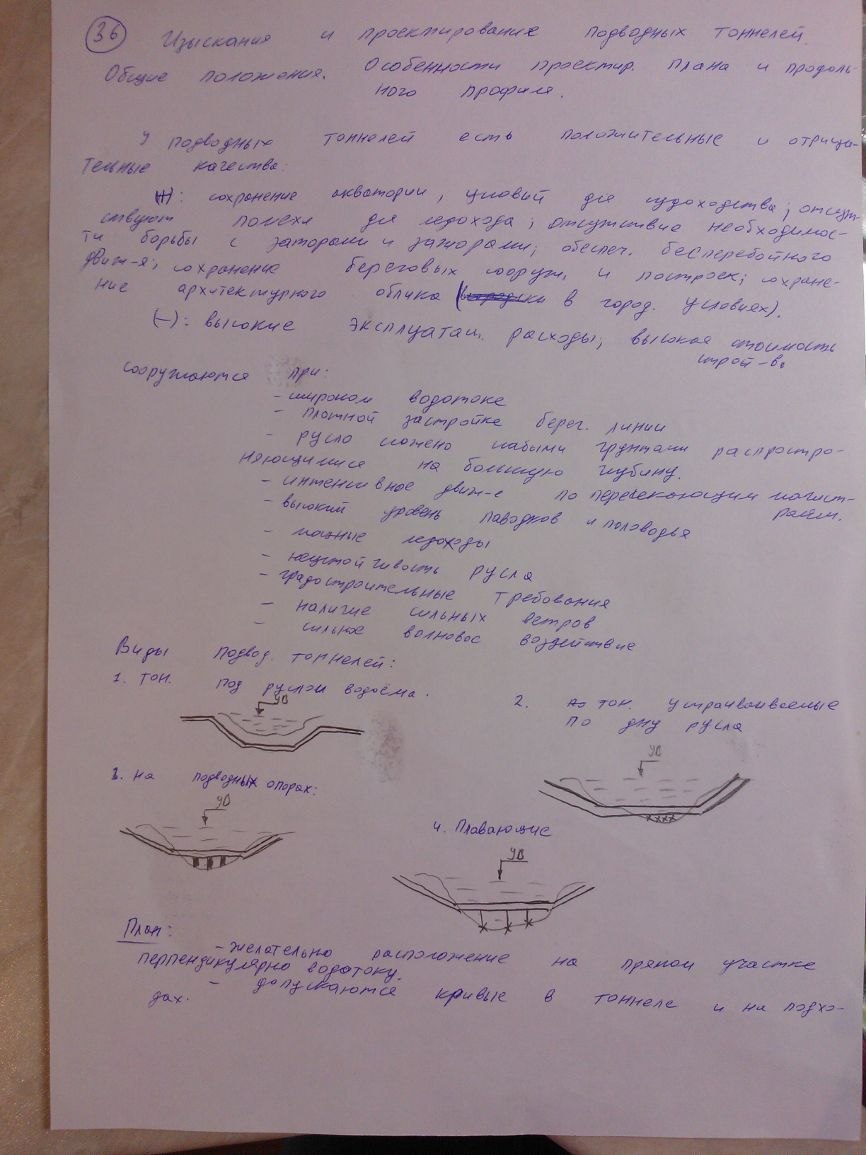 36 Изыскания и проектирование подводных тоннелей.
Общие положения. Особенности проектир. плана и продоль-
ного профиля.
У подводных тоннелей есть положительные и отрица-
тельные качества:
(+): сохранение акватории, условий для судоходства; отсут-
ствуют помехи для ледохода; отсутствие необходимос-
ти борьбы с заторами и зажорами; обеспеч. бесперебойного
движ-я; сохранение береговых сооруж. и построек; сохране-
ние архитектурного облика (в город. условиях).
(−): высокие эксплуатац. расходы; высокая стоимость
строй-ва
Сооружаются при:
- широком водотоке
- плотной застройке берег. линии
- русло сложено слабыми грунтами распростро-
няющимися на большую глубину.
- интенсивное движ-е по пересекающим магист-
ралям.
- высокий уровень паводков и половодья
- мощные ледоходы
- неустойчивость русла
- градостроительные требования
- наличие сильных ветров
- сильное волновое воздействие
Виды подвод. тоннелей:
1. тон. под руслом водоёма.
УВ
2. тон. устраиваемые
по дну русла
УВ
3. на подводных опорах:
УВ
4. Плавающие
УВ
План:
- желательно расположение на прямом участке
перпендикулярно водотоку.
- допускаются кривые в тоннеле и на подхо-
дах.